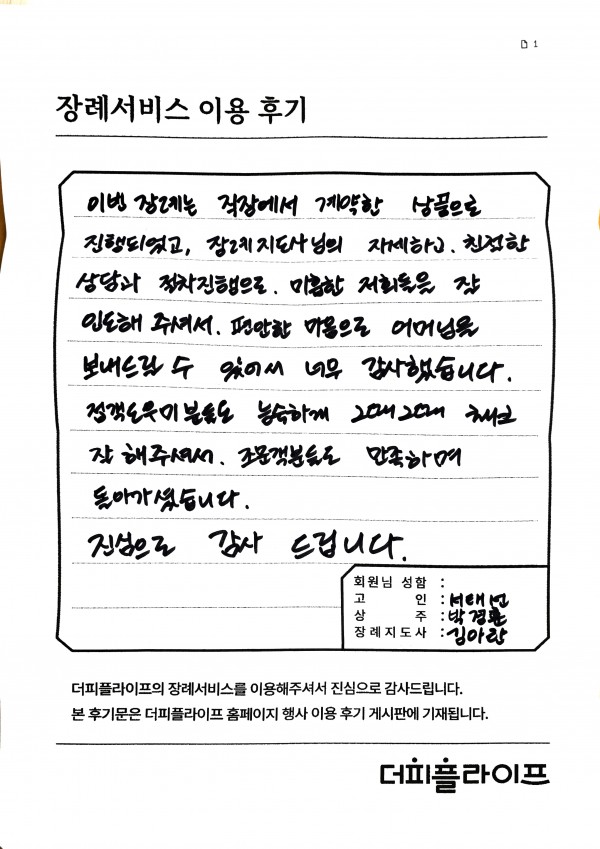 1
장례서비스 이용 후기
이번 장례는 직장에서 계약한 상품으로
진행되었고, 장례지도사님의 자세하고, 친절한
상담과 절차진행으로, 미흡한 저희들을 잘
인도해 주셔서, 편안한 마음으로 어머님을
보내드릴 수 있어서 너무 감사했습니다.
접객도우미분들도 능숙하게 그때그때 체크
잘 해주셔서, 조문객분들도 만족하며
돌아가셨습니다.
진심으로 감사 드립니다.
회원님 성함 :
고 인 : 서태선
상 주 : 박경환
장례지도사 : 김아란
더피플라이프의 장례서비스를 이용해주셔서 진심으로 감사드립니다.
본 후기문은 더피플라이프 홈페이지 행사 이용 후기 게시판에 기재됩니다.
더피플라이프